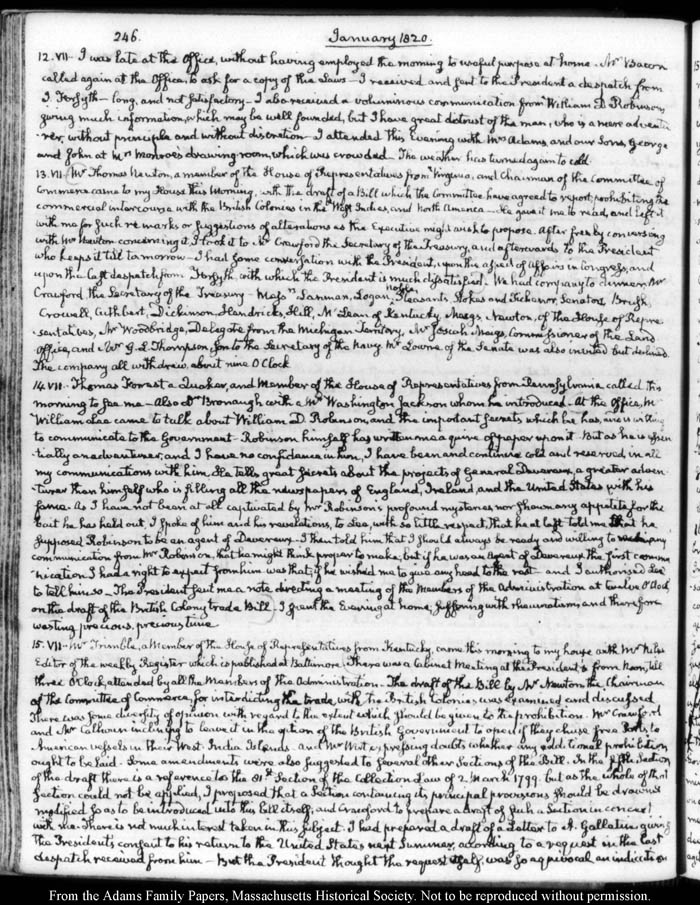 246. January 1820.
12. VII. I was late at the Office, without having employed the morning to useful purpose at home. Mr Bacon
called again at the Office, to ask for a copy of the Laws — I received and sent to the President a despatch from
J. Forsyth — long, and not satisfactory — I also received a voluminous communication from William D. Robinson,
giving much information, which may be well founded, but I have great distrust of the man, who is a meer adventu-
rer, without principle and without discretion — I attended this Evening with Mrs Adams, and our Sons, George
and John at Mrs Monroe's drawing-room, which was crowded — The weather has turned again to cold.
13. VII. Mr Thomas Newton, a member of the House of Representatives from Virginia, and Chairman of the Committee of
Commerce came to my House this Morning, with the draft of a Bill which the Committee have agreed to report, prohibiting the
commercial intercourse with the British Colonies in the West Indies, and North America — He gave it me to read, and left it
with me for such remarks or suggestions of alterations as the Executive might wish to propose. After freely conversing
with Mr Newton concerning it, I took it to Mr Crawford the Secretary of the Treasury, and afterwards to the President
who keeps it till tomorrow — I had some conversation with the President, upon the aspect of affairs in Congress, and
upon the last despatch from Forsyth, with which the President is much dissatisfied. We had company to dinner, Mr
Crawford the Secretary of the Treasury — Messrs Lanman, Logan, Noble, Pleasants, Stokes and Tichenor, Senators, Brush,
Crowell, Cuthbert, Dickinson, Hendricks, Hill, McLean of Kentucky, Meigs, Newton, of the House of Repre-
sentatives, Mr Woodbridge, Delegate from the Michigan Territory, Mr Josiah Meigs, Commissioner of the Land
Office, and Mr G. L. Thompson, son to the Secretary of the Navy. Mr Lowrie of the Senate was also invited but declined.
The company all withdrew about nine O'Clock
14. VII. Thomas Forrest a Quaker, and Member of the House of Representatives from Pennsylvania called this
morning to see me — Also Dr Bronaugh with a Mr Washington Jackson whom he introduced. At the Office, Mr
William Lee came to talk about William D. Robinson, and the important secrets which he has, and is willing
to communicate to the Government. Robinson himself has written me a quire of paper upon it. But as he is essen-
tially an adventurer, and I have no confidence in him, I have been and continue cold and reserved in all
my communications with him. He tells great secrets about the projects of General Devereux, a greater adven-
turer than himself who is filling all the newspapers of England, Ireland, and the United States with his
fame. As I have not been at all captivated by Mr Robinson's profound mysteries nor shown any appetite for the
bait he has held out, I spoke of him and his revelations, to Lee, with so little respect, that he at last told me that he
supposed Robinson to be an agent of Devereux. I then told him that I should always be ready and willing to receive any
communication from Mr Robinson, that he might think proper to make, but if he was an agent of Devereux the first commu-
nication I had a right to expect from him was that, if he wished me to give any heed to the rest — and I authorised Lee
to tell him so. — The President sent me a note directing a meeting of the Members of the Administration at twelve O'Clock,
on the draft of the British Colony trade Bill. I spent the Evening at home, suffering with rheumatism, and therefore
wasting precious, precious time
15. VII. Mr Trimble, a Member of the House of Representatives from Kentucky, came this morning to my house with Mr Niles
Editor of the weekly Register which is published at Baltimore. There was a Cabinet Meeting at the President's from Noon, till
three O'Clock, attended by all the Members of the Administration. The draft of the Bill by Mr Newton the Chairman
of the Committee of Commerce, for interdicting the trade with the British Colonies was examined and discussed
There was some diversity of opinion with regard to the extent which should be given to the prohibition. Mr Crawford
and Mr Calhoun inclining to leave it in the option of the British Government to open if they chuse free Ports to
American vessels in their West India Islands. And Mr Wirt expressing doubts whether any additional prohibition
ought to be laid. Some amendments were also suggested to several other Sections of the Bill. In the fifth Section
of the draft there is a reference to the 91st Section of the Collection Law of 2. March 1799. but as the whole of that
Section could not be applied, I proposed that a Section containing its principal provisions should be drawn
modified so as to be introduced into the bill itself, and Crawford to prepare a draft of such a Section in concert
with me. There is not much interest taken in this subject. I had prepared a draft of a Letter to A. Gallatin, giving
The President's consent to his return to the United States next Summer, according to a request in the last
despatch received from him — But the President thought the request itself was so equivocal an indication
From the Adams Family Papers, Massachusetts Historical Society. Not to be reproduced without permission.